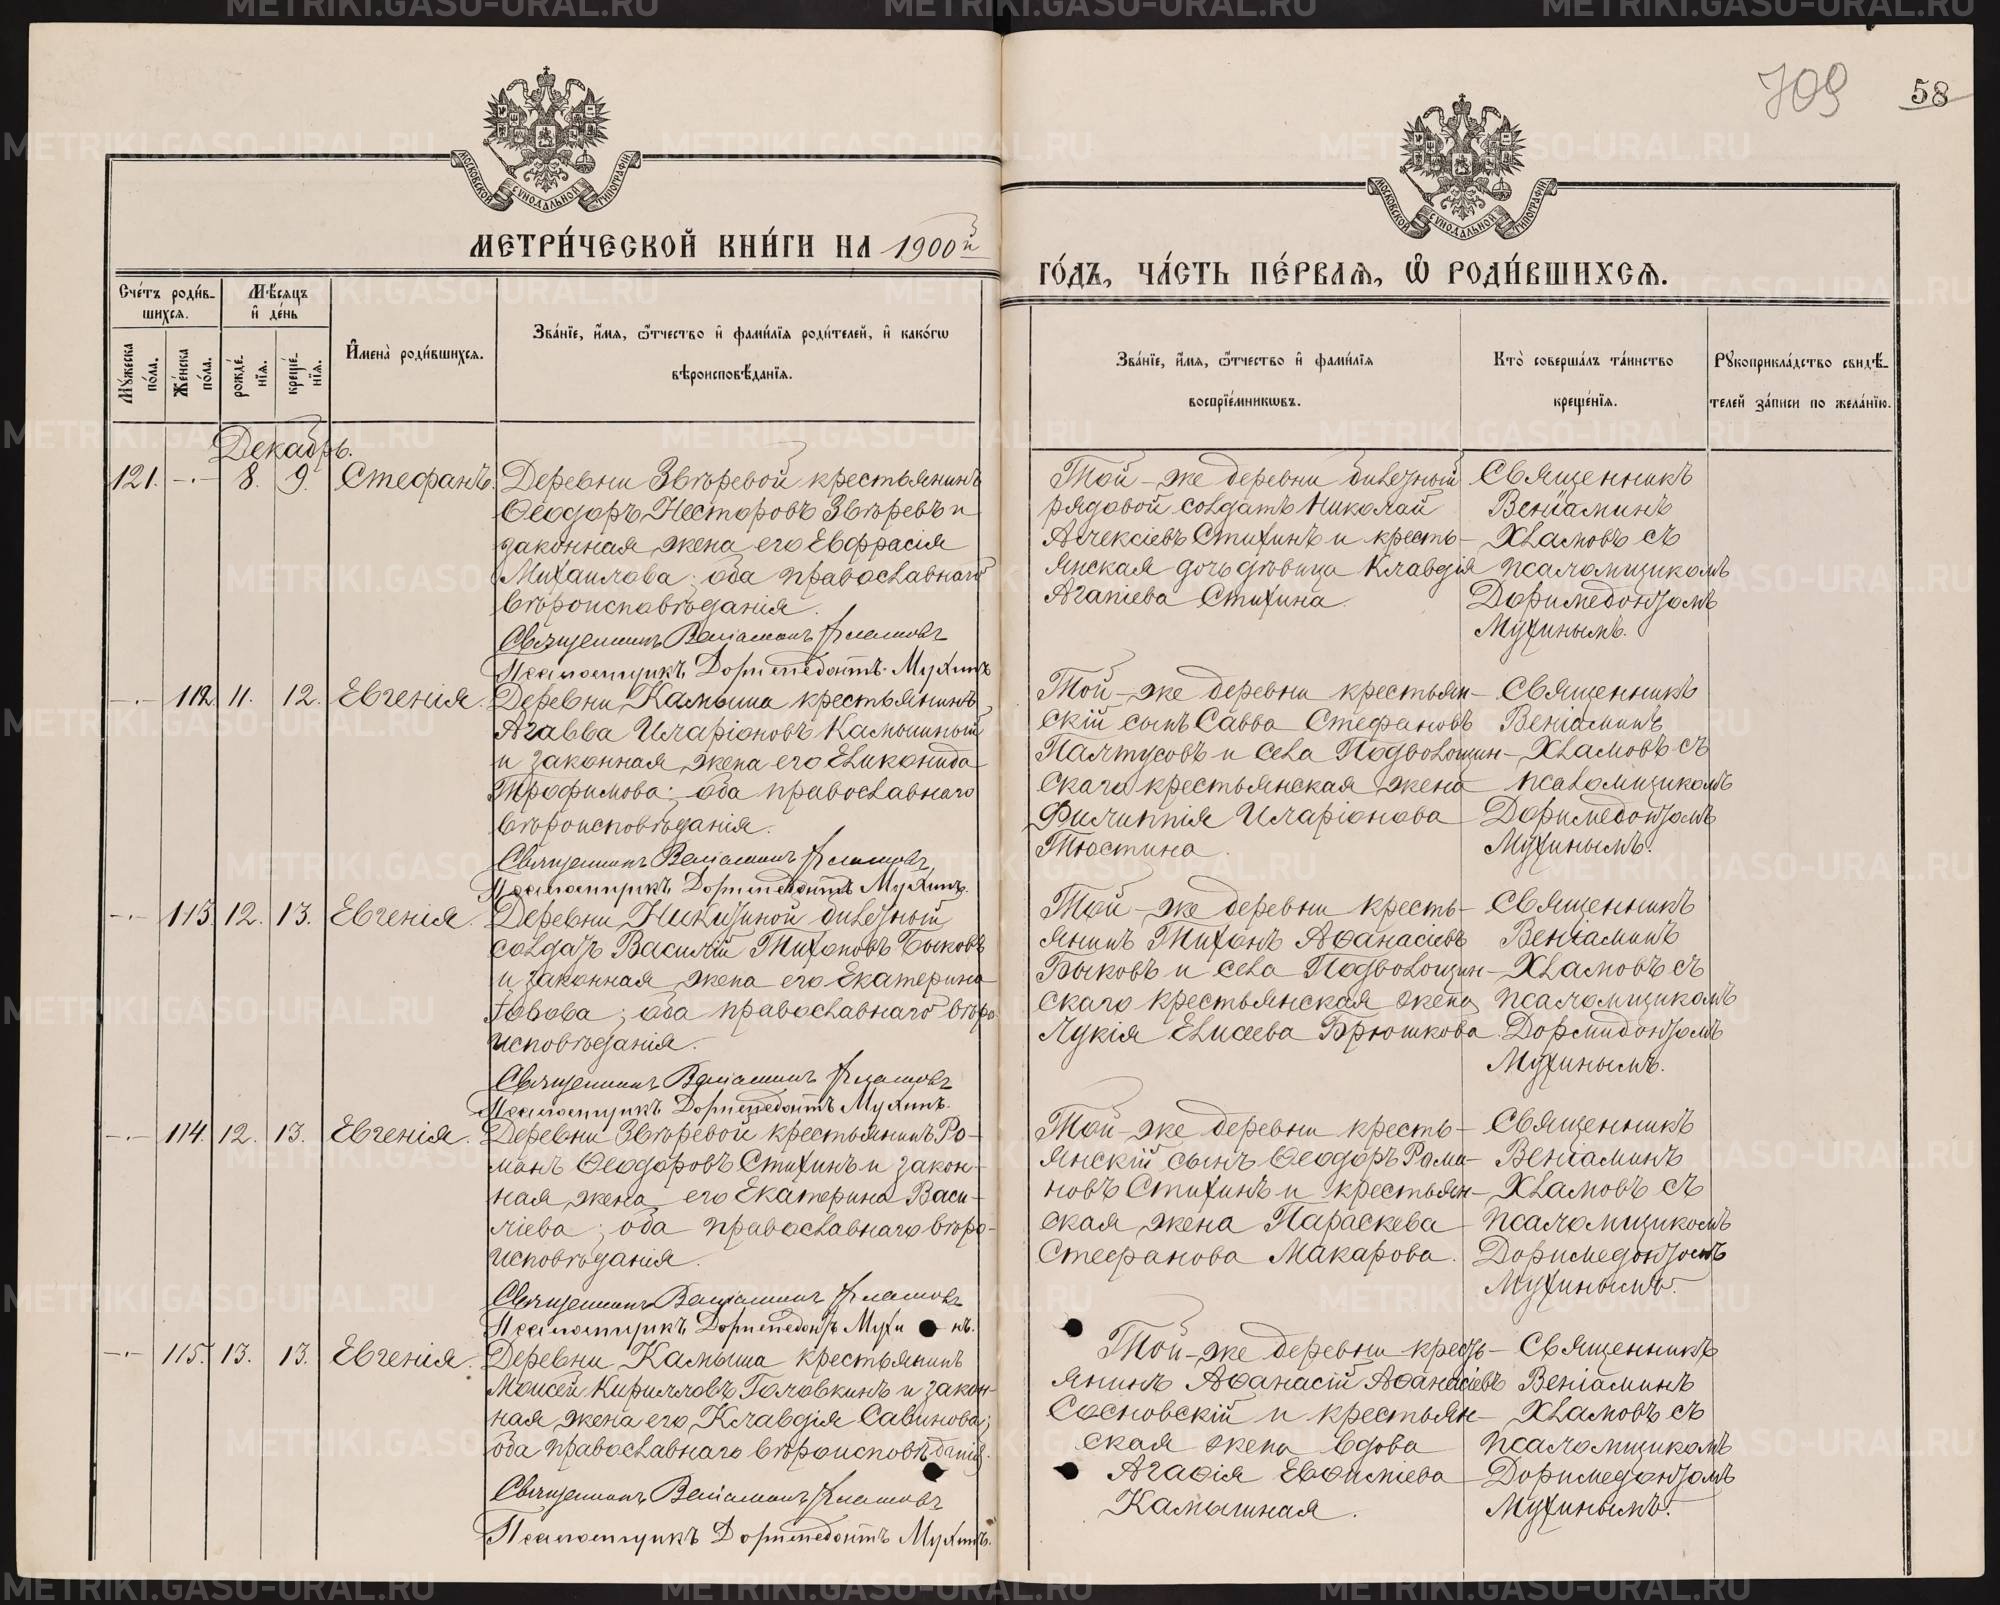 709
58
МОСКОВСКОЙ СѴНОДАЛЬНОЙ ТИПОГРАФІИ
МОСКОВСКОЙ СѴНОДАЛЬНОЙ ТИПОГРАФІИ
МЕТРИ́ЧЕСКОЙ КНИ́ГИ НА 1900й
ГО́ДЪ, ЧА́СТЬ ПЕ́РВАѦ, Ѡ҆ РОДИ́ВШИХСѦ.
Сче́тъ роди́в-
шихсѧ.
Мѣ́сѧцъ
и҆ де́нь
Мꙋ́жеска по́ла.
Же́нска по́ла.
рожде́нїѧ.
креще́нїѧ.
И҆мена̀ роди́вшихсѧ.
Зва́нїе, и҆́мѧ, ѻ҆́тчество и҆ фами́лїѧ роди́телей, и҆ како́гѡ
вѣроисповѣ́данїѧ.
Зва́нїе, и҆́мѧ, ѻ҆́тчество и҆ фами́лїѧ
воспрїе́мникѡвъ.
Кто̀ соверша́лъ та́инство
креще́нїѧ.
Рꙋкоприкла́дство свидѣ́-
телей за́писи по жела́нїю.
Декабрь.
121. -·- 8. 9. Стефанъ.
Деревни Звѣревой крестьянинъ
Ѳеодоръ Несторовъ Звѣревъ и
законная жена его Евфрасія
Михаилова; оба православнаго
вѣроисповѣданія.
Священникъ Веніаминъ Хламовъ
Псаломщикъ Доримедонтъ Мухинъ
Той-же деревни билетный
рядовой солдатъ Николай
Алексіевъ Стихинъ и кресть-
янская дочь дѣвица Клавдія
Агапіева Стихина.
Священникъ
Веніаминъ
Хламовъ съ
псаломщикомъ
Доримедонтомъ
Мухинымъ.
-·- 112. 11. 12. Евгенія.
Деревни Камыша крестьянинъ
Агавва Иларіоновъ Камышный
и законная жена его Еликонида
Трофимова; оба православнаго
вѣроисповѣданія.
Священникъ Веніаминъ Хламовъ
Псаломщикъ Доримедонтъ Мухинъ.
Той-же деревни крестьян-
скій сынъ Савва Стефановъ
Палтусовъ и села Подволошин-
скаго крестьянская жена
Филиппія Иларіонова
Тюстина.
Священникъ
Веніаминъ
Хламовъ съ
псаломщикомъ
Доримедонтомъ
Мухинымъ.
-·- 113. 12. 13. Евгенія.
Деревни Никитиной билетный
солдатъ Василій Тихоновъ Быковъ
и законная жена его Екатерина
Іовова; оба православнаго вѣро
исповѣданія.
Священникъ Веніаминъ Хламовъ
Псаломщикъ Доримедонтъ Мухинъ.
Той-же деревни кресть-
янинъ Тихонъ Аѳанасіевъ
Быковъ и села Подволошин-
скаго крестьянская жена
Лукія Елисеева Брюшкова.
Священникъ
Веніаминъ
Хламовъ съ
псаломщикомъ
Дормидонтомъ
Мухинымъ.
-·- 114. 12. 13. Евгенія.
Деревни Звѣревой крестьянинъ Ро-
манъ Ѳеодоровъ Стихинъ и закон-
ная жена его Екатерина Васи-
ліева; оба православнаго вѣро-
исповѣданія.
Священникъ Веніаминъ Хламовъ
Псаломщикъ Доримедонтъ Мухинъ.
Той-же деревни кресть-
янскій сынъ Ѳеодоръ Рома-
новъ Стихинъ и крестьян-
ская жена Параскева
Стефанова Макарова.
Священникъ
Веніаминъ
Хламовъ съ
псаломщикомъ
Доримедонтомъ
Мухинымъ.
-·- 115. 13. 13. Евгенія.
Деревни Камыша крестьянинъ
Моисей Кирилловъ Головкинъ и закон-
ная жена его Клавдія Савинова;
оба православнаго вѣроисповѣданія.
Священникъ Веніаминъ Хламовъ
Псаломщикъ Доримедонтъ Мухинъ.
Той-же деревни кресть-
янинъ Аѳанасій Аѳанасіевъ
Сосновскій и крестьян-
ская жена вдова
Агаѳія Евѳиміева
Камышная.
Священникъ
Веніаминъ
Хламовъ съ
псаломщикомъ
Доримедонтомъ
Мухинымъ.
METRIKI.GASO-URAL.RU